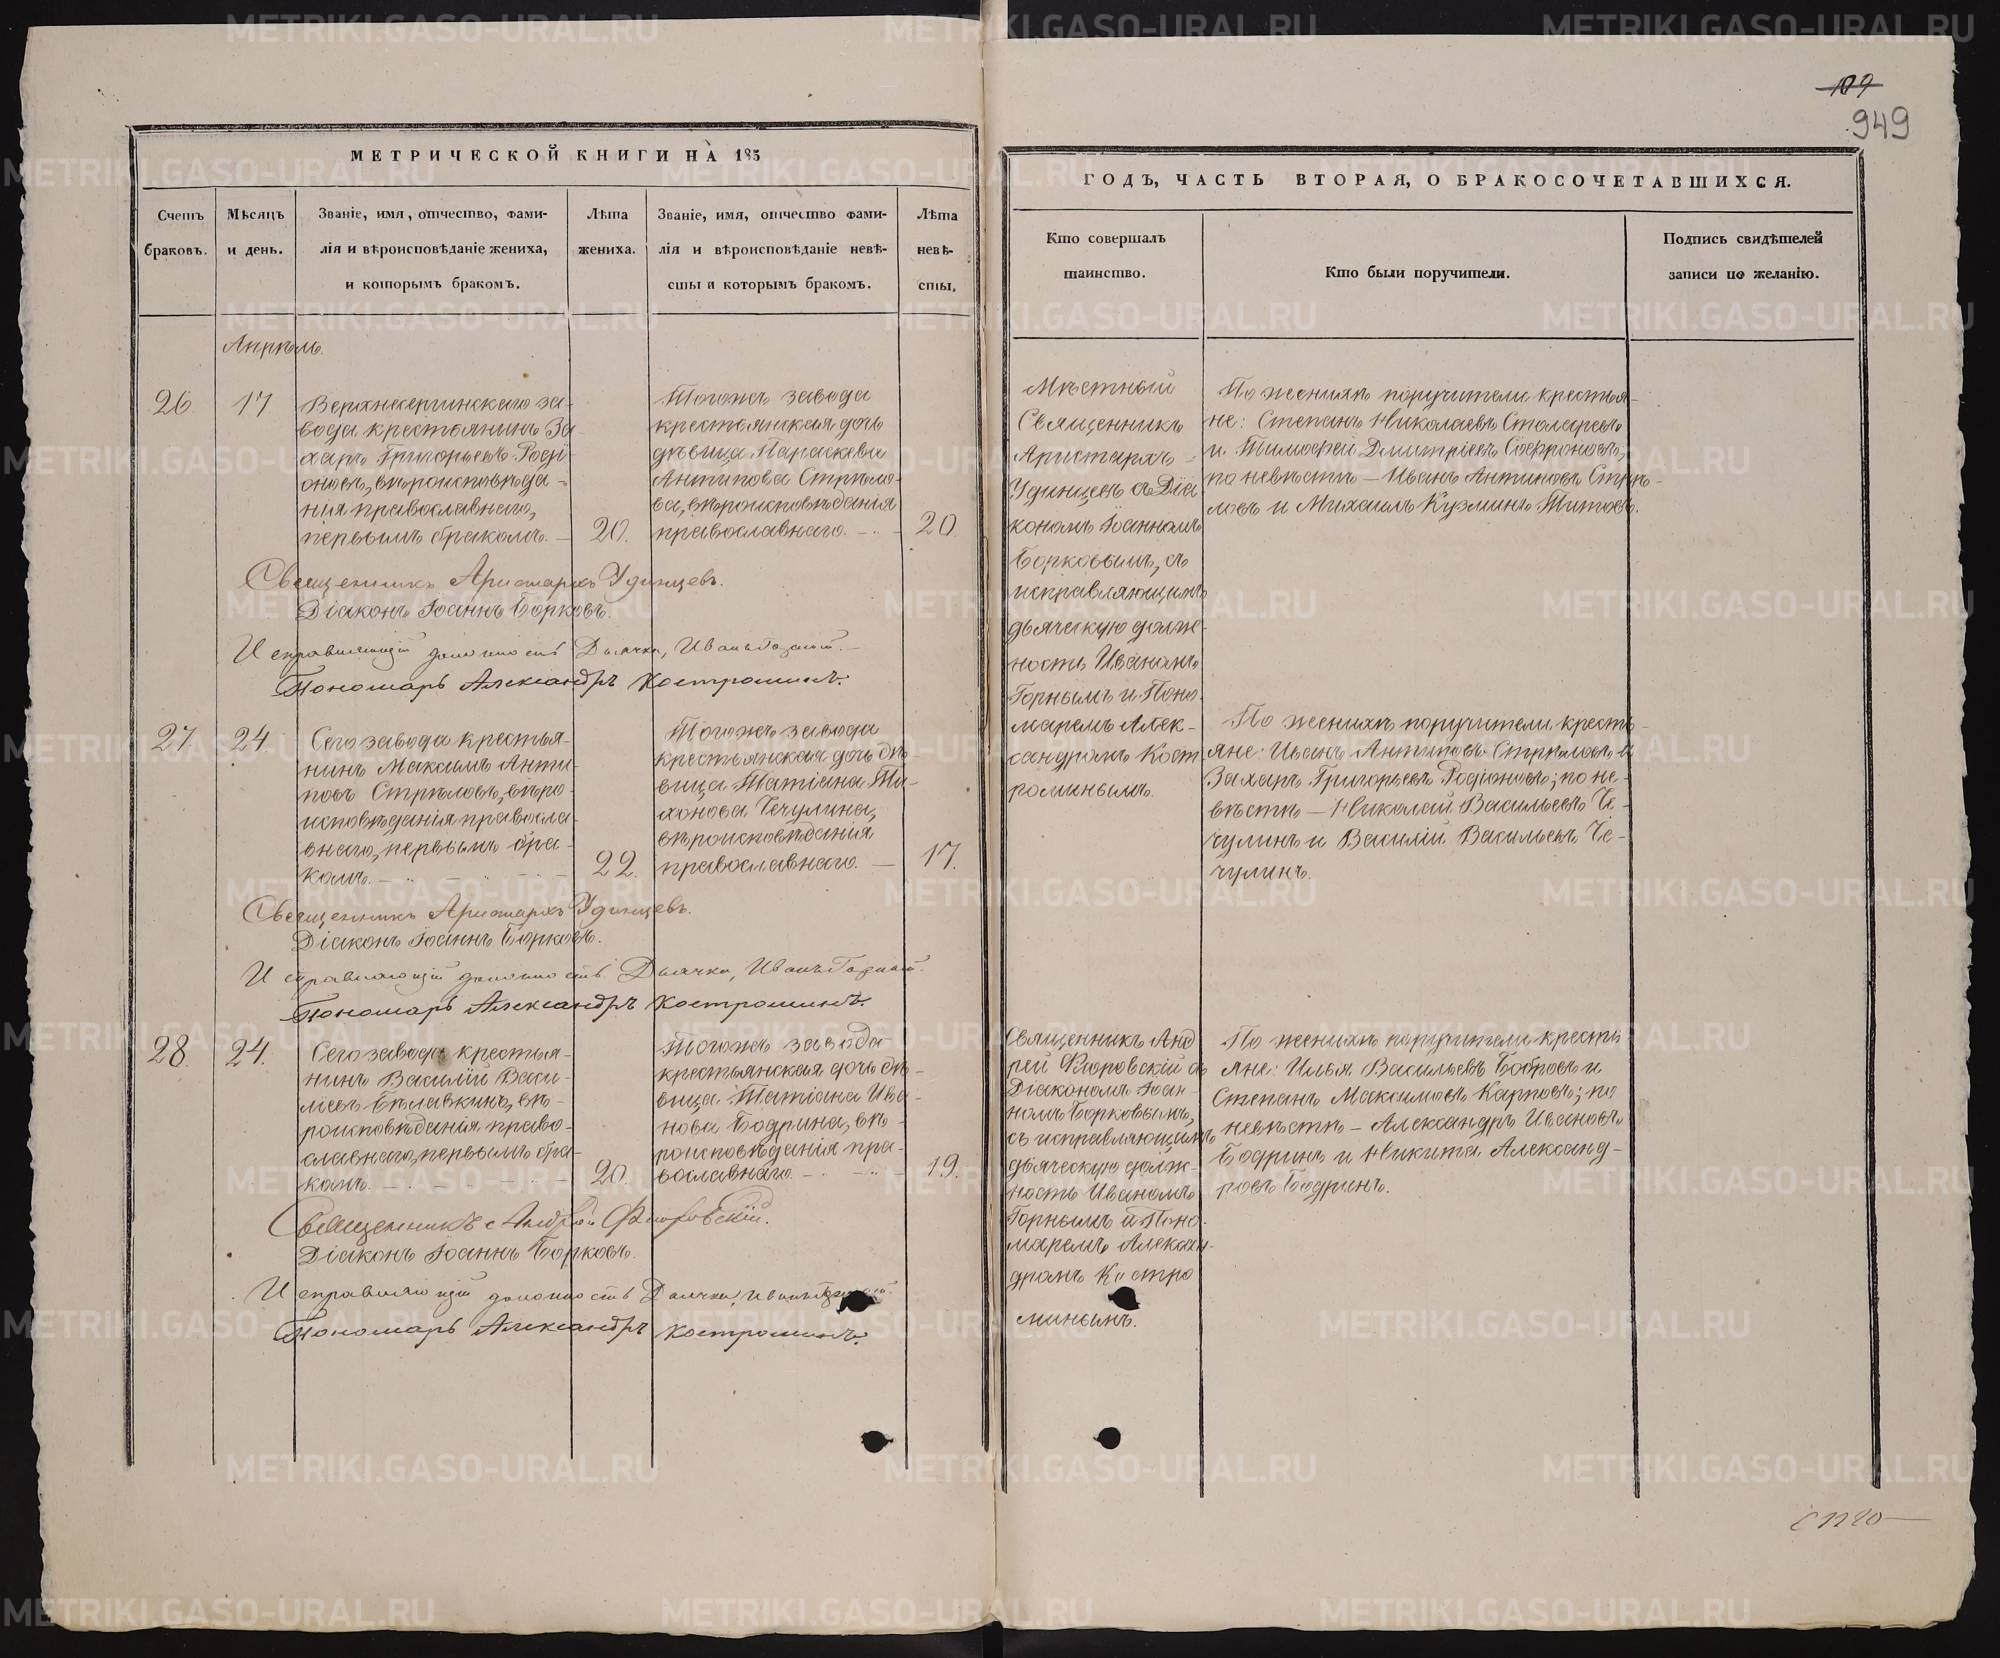 109
949
МЕТРИЧЕСКОЙ КНИГИ НА 185
ГОДЪ, ЧАСТЬ ВТОРАЯ, О БРАКОСОЧЕТАВШИХСЯ.
Счетъ
браковъ.
Мѣсяцъ
и день.
Званіе, имя, отчество, фами-
лія и вѣроисповѣданіе жениха,
и которымъ бракомъ.
Лѣта
жениха.
Званіе, имя, отчество фами-
лія и вѣроисповѣданіе невѣ-
сты и которымъ бракомъ.
Лѣта
невѣ-
сты.
Кто совершалъ
таинство.
Кто были поручители.
Подпись свидѣтелей
записи по желанію.
Апрѣль.
26.
17
Верхнесергинскаго за-
вода крестьянинъ За-
харъ Григорьевъ Роди-
оновъ, вѣроисповѣда-
нія православнаго,
первымъ бракомъ. —
20.
Тогожъ завода
крестьянская дочь
дѣвица Параскева
Антипова Стрѣло-
ва, вѣроисповѣданія
православнаго. —
20.
Мѣстный
Священникъ
Аристархъ
Удинцевъ съ Діа
кономъ Іоанномъ
Борковымъ, съ
исправляющимъ
дьяческую долж-
ность Иваномъ
Горнымъ и Поно-
маремъ Алек-
сандромъ Кост
роминымъ.
По женихѣ поручители крестья-
не: Степанъ Николаевъ Столаревъ
и Тимофей Дмитріевъ Софроновъ;
по невѣстѣ — Иванъ Антиповъ Стрѣ-
ловъ и Михаилъ Кузминъ Титовъ.
Священникъ Аристархъ Удинцевъ.
Діаконъ Іоаннъ Борковъ.
Исправляющій должность Дьячка, Иванъ Горный.
Пономарь Александръ Костроминъ.
27.
24.
Сего завода крестья-
нинъ Максимъ Анти-
повъ Стрѣловъ, вѣро-
исповѣданія правосла-
внаго, первымъ бра-
комъ. —
22.
Тогожъ завода
крестьянская дочь дѣ-
вица Татіана Ти-
хонова Чечулина,
вѣроисповѣданія
православнаго. —
17.
По женихѣ поручители кресть-
яне: Иванъ Антиповъ Стрѣловъ и
Захаръ Григорьевъ Родіоновъ; по не-
вѣстѣ — Николай Васильевъ Че-
чулинъ и Василій Васильевъ Че-
чулинъ.
Священникъ Аристархъ Удинцевъ.
Діаконъ Іоаннъ Борковъ.
Исправляющій должность Дьячка, Иванъ Горный.
Пономарь Александръ Костроминъ.
28.
24.
Сего завода крестья-
нинъ Василій Васи-
льевъ Булавкинъ, вѣ-
роисповѣданія право-
славнаго, первымъ бра-
комъ. —
20.
Тогожъ завода
крестьянская дочь дѣ-
вица Татіана Ива-
нова Бодрина, вѣ-
роисповѣданія пра-
вославнаго. —
19.
Священникъ Анд
рей Флоровскій съ
Діакономъ Іоан-
номъ Борковымъ,
съ исправляющимъ
дьяческую долж-
ность Иваномъ
Горнымъ и Поно-
маремъ Алексан-
дромъ Костро
минымъ.
По женихѣ поручители кресть
яне: Илья Васильевъ Бобровъ и
Степанъ Максимовъ Карповъ; по
невѣстѣ — Александръ Ивановъ
Бодринъ и Никита Александ-
ровъ Бодринъ.
Священникъ Андрей Флоровскій.
Діаконъ Іоаннъ Борковъ.
Исправляющій должность Дьячка, Иванъ Горный.
Пономарь Александръ Костроминъ.